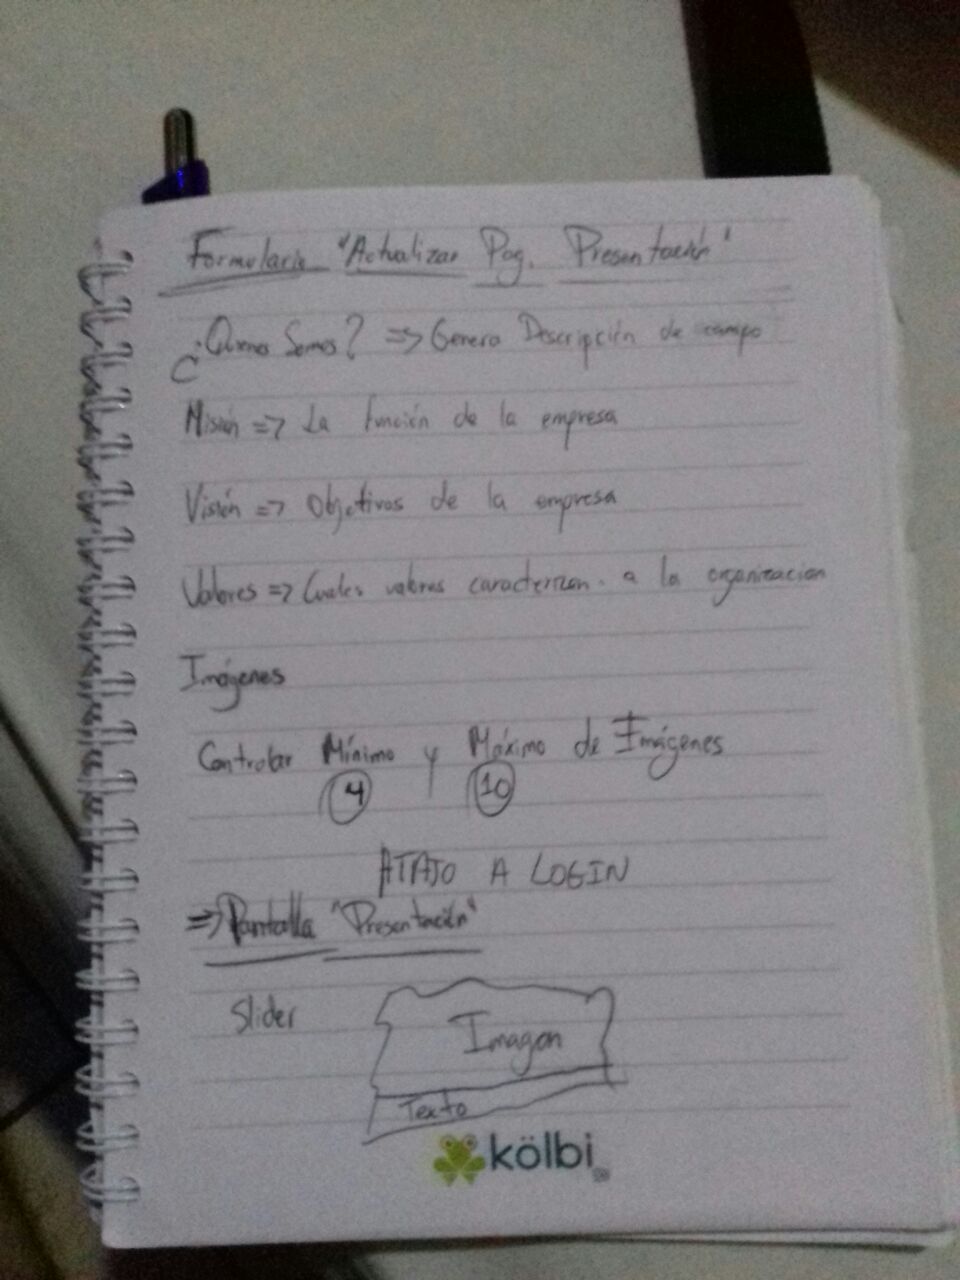 Formulario "Actualizar Pag. Presentación"
¿Quienes Somos? => Genera Descripción de campo
Misión => La función de la empresa
Visión => Objetivos de la empresa
Valores => Cuales valores caracterizan a la organizacion
Imágenes
Controlar Mínimo y Máximo de Imágenes
4 10
ATAJO A LOGIN
=> Pantalla "Presentación"
Slider
Imagen
Texto
kölbi